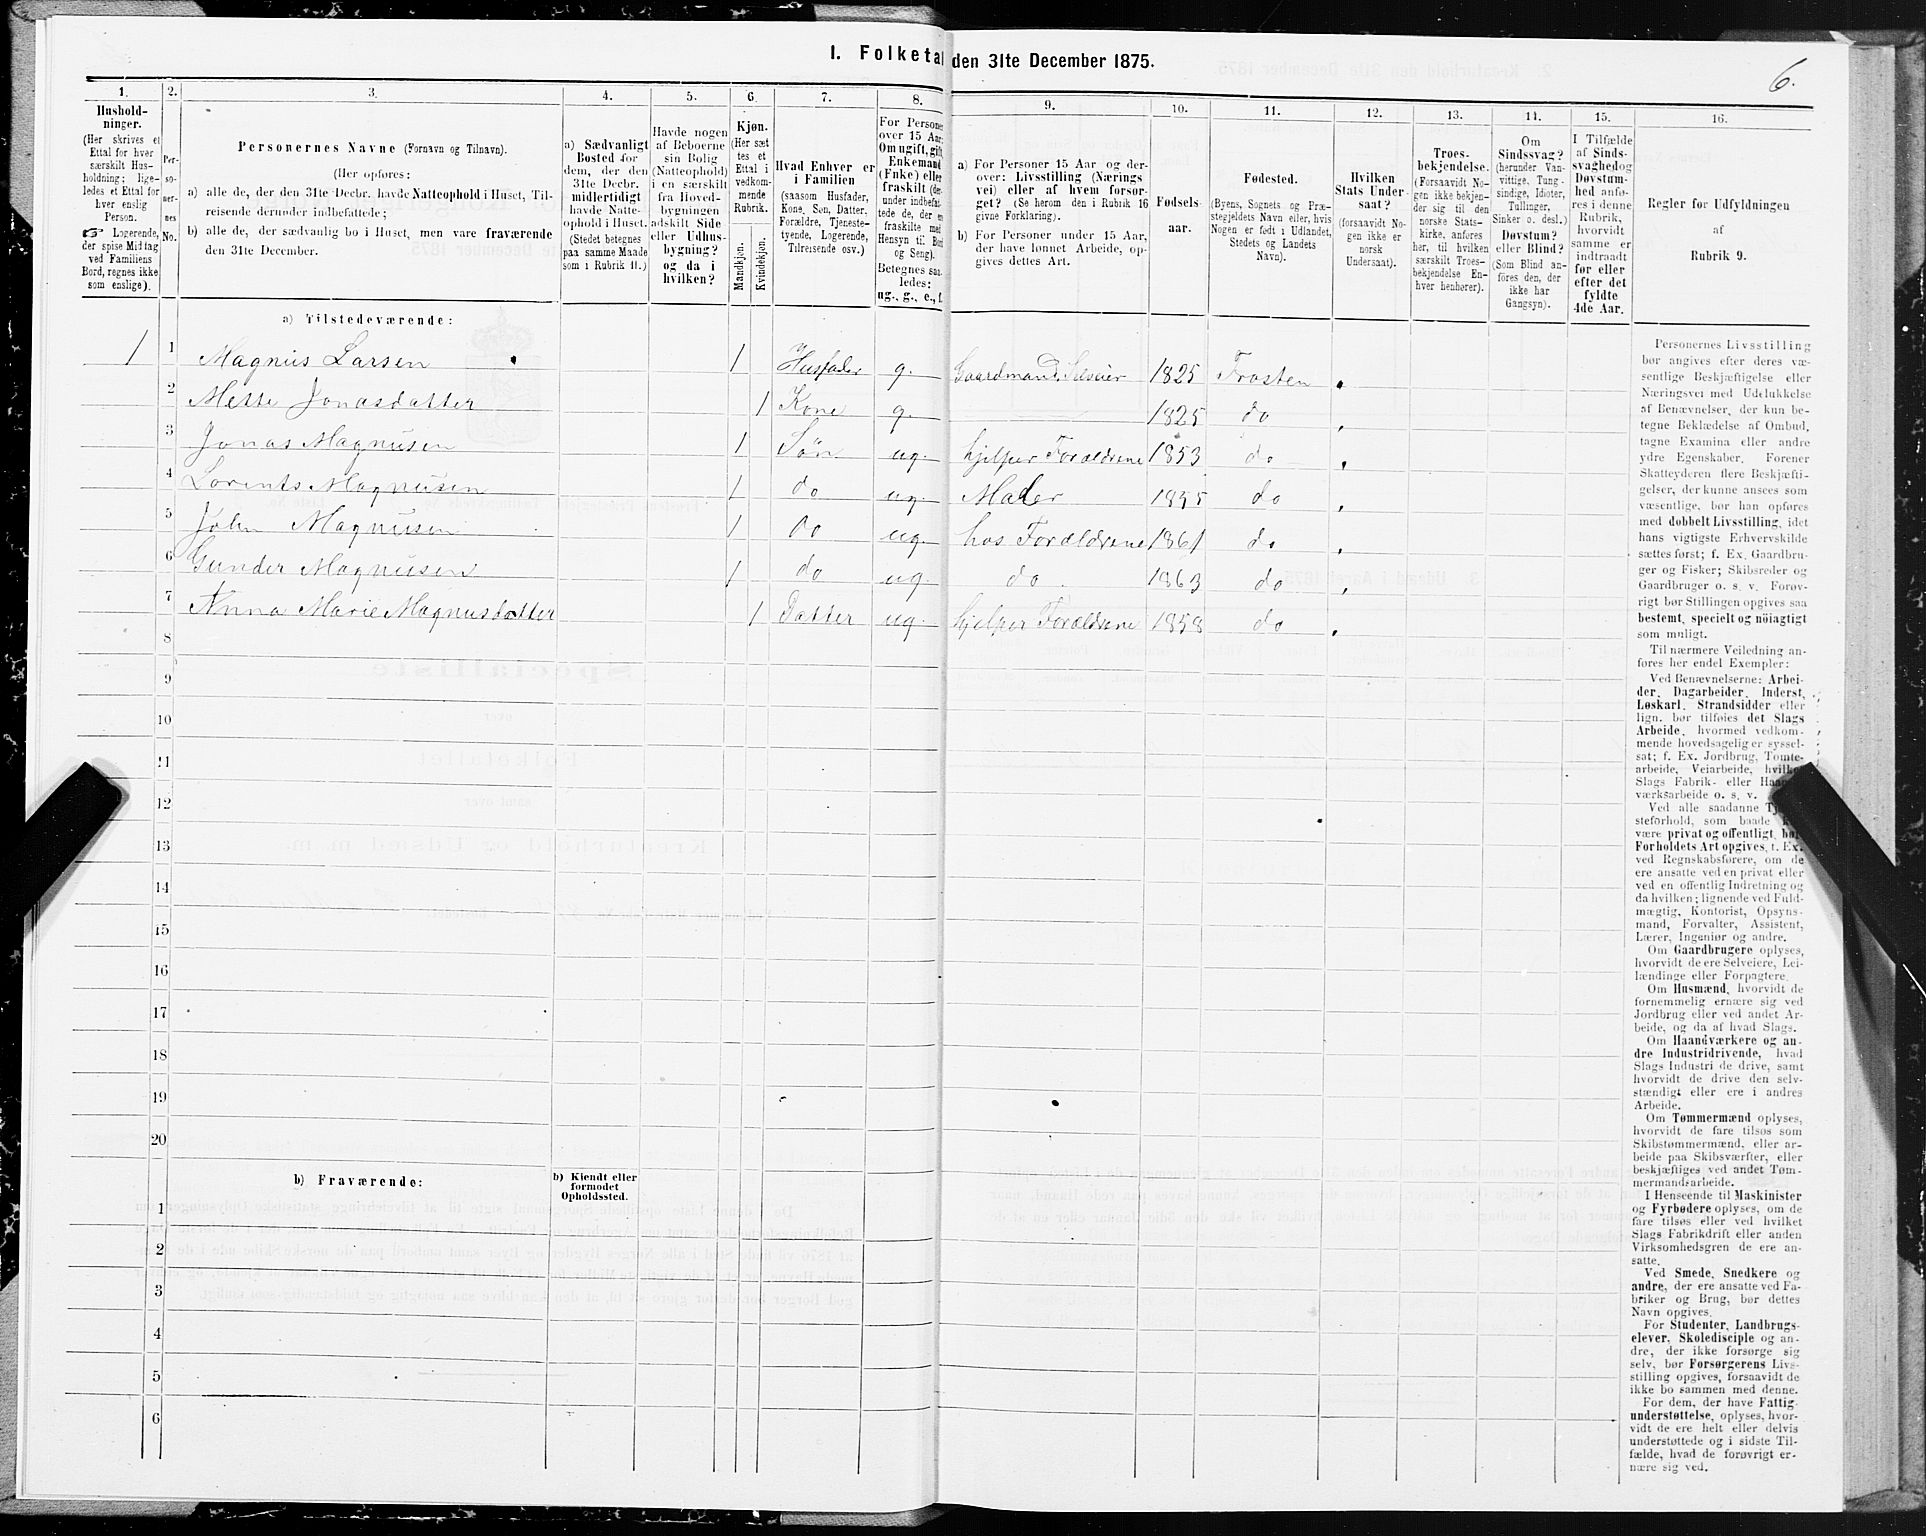 I. Folketal den 31te December 1875.
6.
1. 2. 3. 4. 5. 6. 7. 8. 9. 10. 11. 12. 13. 14. 15. 16.
Hushold-
ninger.
(Her skrives et
Ettal for hver
særskilt Hus-
holdning; lige-
ledes et Ettal for
hver enslig
Person.
☞ Logerende,
der spise Middag
ved Familiens
Bord, regnes ikke
som enslige).
Per-
so-
ner-
nes
No.
Personernes Navne (Fornavn og Tilnavn).
(Her opføres:
a) alle de, der den 31te Decbr. havde Natteophold i Huset, Til-
reisende derunder indbefattede;
b) alle de, der sædvanlig bo i Huset, men vare fraværende
den 31te December.
a) Sædvanligt
Bosted for
dem, der den
31te Decbr.
midlertidigt
havde Natte-
ophold i Huset.
(Stedet betegnes
paa samme Maade
som i Rubrik 11.)
Havde nogen
af Beboerne
sin Bolig
(Natteophold)
i en særskilt
fra Hoved-
bygningen
adskilt Side
eller Udhus-
bygning?
og da i
hvilken?
Kjøn.
(Her sæt
tes et
Ettal i
vedkom-
mende
Rubrik.
Mandkjøn.
Kvindekjøn.
Hvad Enhver er
i Familien
(saasom Husfader,
Kone, Søn, Datter,
Forældre, Tjeneste-
tyende, Logerende,
Tilreisende osv.)
For Personer
over 15 Aar:
Om ugift, gift,
Enkemand
(Enke) eller
fraskilt (der-
under indbefat-
tede de, der ere
fraskilte med
Hensyn til Bord
og Seng).
Betegnes saa-
ledes:
ug., g., e., f.
a) For Personer 15 Aar og der-
over: Livsstilling (Nærings
vei) eller af hvem forsør-
get? (Se herom den i Rubrik 16
givne Forklaring).
b) For Personer under 15 Aar,
der have lønnet Arbeide, op-
gives dettes Art.
Fødsels-
aar.
Fødested.
(Byens, Sognets og Præ-
stegjeldets Navn eller, hvis
Nogen er født i Udlandet,
Stedets og Landets
Navn).
Hvilken
Stats Under-
saat?
(forsaavidt No-
gen ikke er
norsk
Undersaat).
Troes-
bekjendelse.
(Forsaavidt No-
gen ikke bekjen-
der sig til den
norske Stats-
kirke, anføres
her, til hvilken
særskilt Troes-
bekjendelse En-
hver henhører).
Om
Sindssvag?
(herunder Van-
vittige, Tung-
sindige, Idioter,
Tullinger,
Sinker o. desl.)
Døvstum?
eller Blind?
(Som Blind an-
føres den, der
ikke har
Gangsyn).
I Tilfælde
af Sinds-
svaghed og
Døvstum-
hed anfø-
res i denne
Rubrik,
hvorvidt
samme er
indtraadt
før eller
efter det
fyldte
4de Aar.
Regler for Udfyldningen
af
Rubrik 9.
a) Tilstedeværende:
1 1 Magnus Larsen 1 Husfader g. Gaardmand, Selveier 1825 Frosten
2 Mette Jonasdatter 1 Kone g. 1825 do
3 Jonas Magnusen 1 Søn ug. hjelper Forældrene 1853 do
4 Lorents Magnusen 1 do ug. Maler 1855 do
5 John Magnusen 1 do ug. hos Forældrene 1861 do
6 Gunder Magnusen 1 do ug. do 1863 do
7 Anna Marie Magnusdatter 1 Datter ug. hjelper Forældrene 1858 do
8
9
10
11
12
13
14
15
16
17
18
19
20
b) Fraværende:
b) Kjendt eller
formodet
Opholdssted.
1
2
3
4
5
6
Personernes Livsstilling
bør angives efter deres væ-
sentlige Beskjæftigelse eller
Næringsvei med Udelukkelse
af Benævnelser, der kun be-
tegne Beklædelse af Ombud,
tagne Examina eller andre
ydre Egenskaber. Forener
Skatteyderen flere Beskjæfti-
gelser, der kunne ansees som
væsentlige, bør han opføres
med dobbelt Livsstilling, idet
hans vigtigste Erhvervskilde
sættes først; f. Ex. Gaardbru-
ger og Fisker; Skibsreder og
Gaardbruger o. s. v. Forøv-
rigt bør Stillingen opgives saa
bestemt, specielt og nöiagtigt
som muligt.
Til nærmere Veiledning an-
føres her endel Exempler:
Ved Benævnelserne: Arbei-
der, Dagarbeider, Inderst,
Løskarl, Strandsidder eller
lign. bør tilføies det Slags
Arbeide, hvormed vedkom-
mende hovedsagelig er syssel-
sat; f. Ex. Jordbrug, Tomte-
arbeide, Veiarbeide, hvilket
Slags Fabrik- eller Haand-
værksarbeide o. s. v.
Ved alle saadanne Tje-
steforhold, som baade kan
være privat og offentligt, bør
Forholdets Art opgives, f. Ex.
ved Regnskabsførere, om de
ere ansatte ved en privat eller
ved en offentlig Indretning og
da hvilken; lignende ved Fuld-
mægtig, Kontorist, Opsyns-
mand, Forvalter, Assistent,
Lærer, Ingeniør og andre.
Om Gaardbrugere oplyses,
hvorvidt de ere Selveiere, Lei-
lændinge eller Forpagtere.
Om Husmænd, hvorvidt de
fornemmelig ernære sig ved
Jordbrug eller ved andet Ar-
beide, og da af hvad Slags.
Om Haandværkere og an-
dre Industridrivende, hvad
Slags Industri de drive, samt
hvorvidt de drive den selv-
stændigt eller ere i andres
Arbeide.
Om Tømmermænd oplyses,
hvorvidt de fare tilsøs som
Skibstømmermænd, eller ar-
beide paa Skibsværfter, eller
beskjæftiges ved andet Tøm-
mermandsarbeide.
I Henseende til Maskinister
og Fyrbødere oplyses, om de
fare tilsøs eller ved hvilket
Slags Fabrikdrift eller anden
Virksomhedsgren de ere an-
satte.
Ved Smede, Snedkere og
andre, der ere ansatte ved Fa-
briker og Brug, bør dettes
Navn opgives.
For Studenter, Landbrugs-
elever, Skoledisciple og an-
dre, der ikke forsørge sig
selv, bør Forsørgerens Livs-
stilling opgives, forsaavidt de
ikke bo sammen med denne.
For dem, der have Fattig-
understøttelse, oplyses, hvor-
vidt de ere helt eller delvis
understøttede og i sidste Til-
fælde, hvad de forøvrigt er-
nære sig ved.